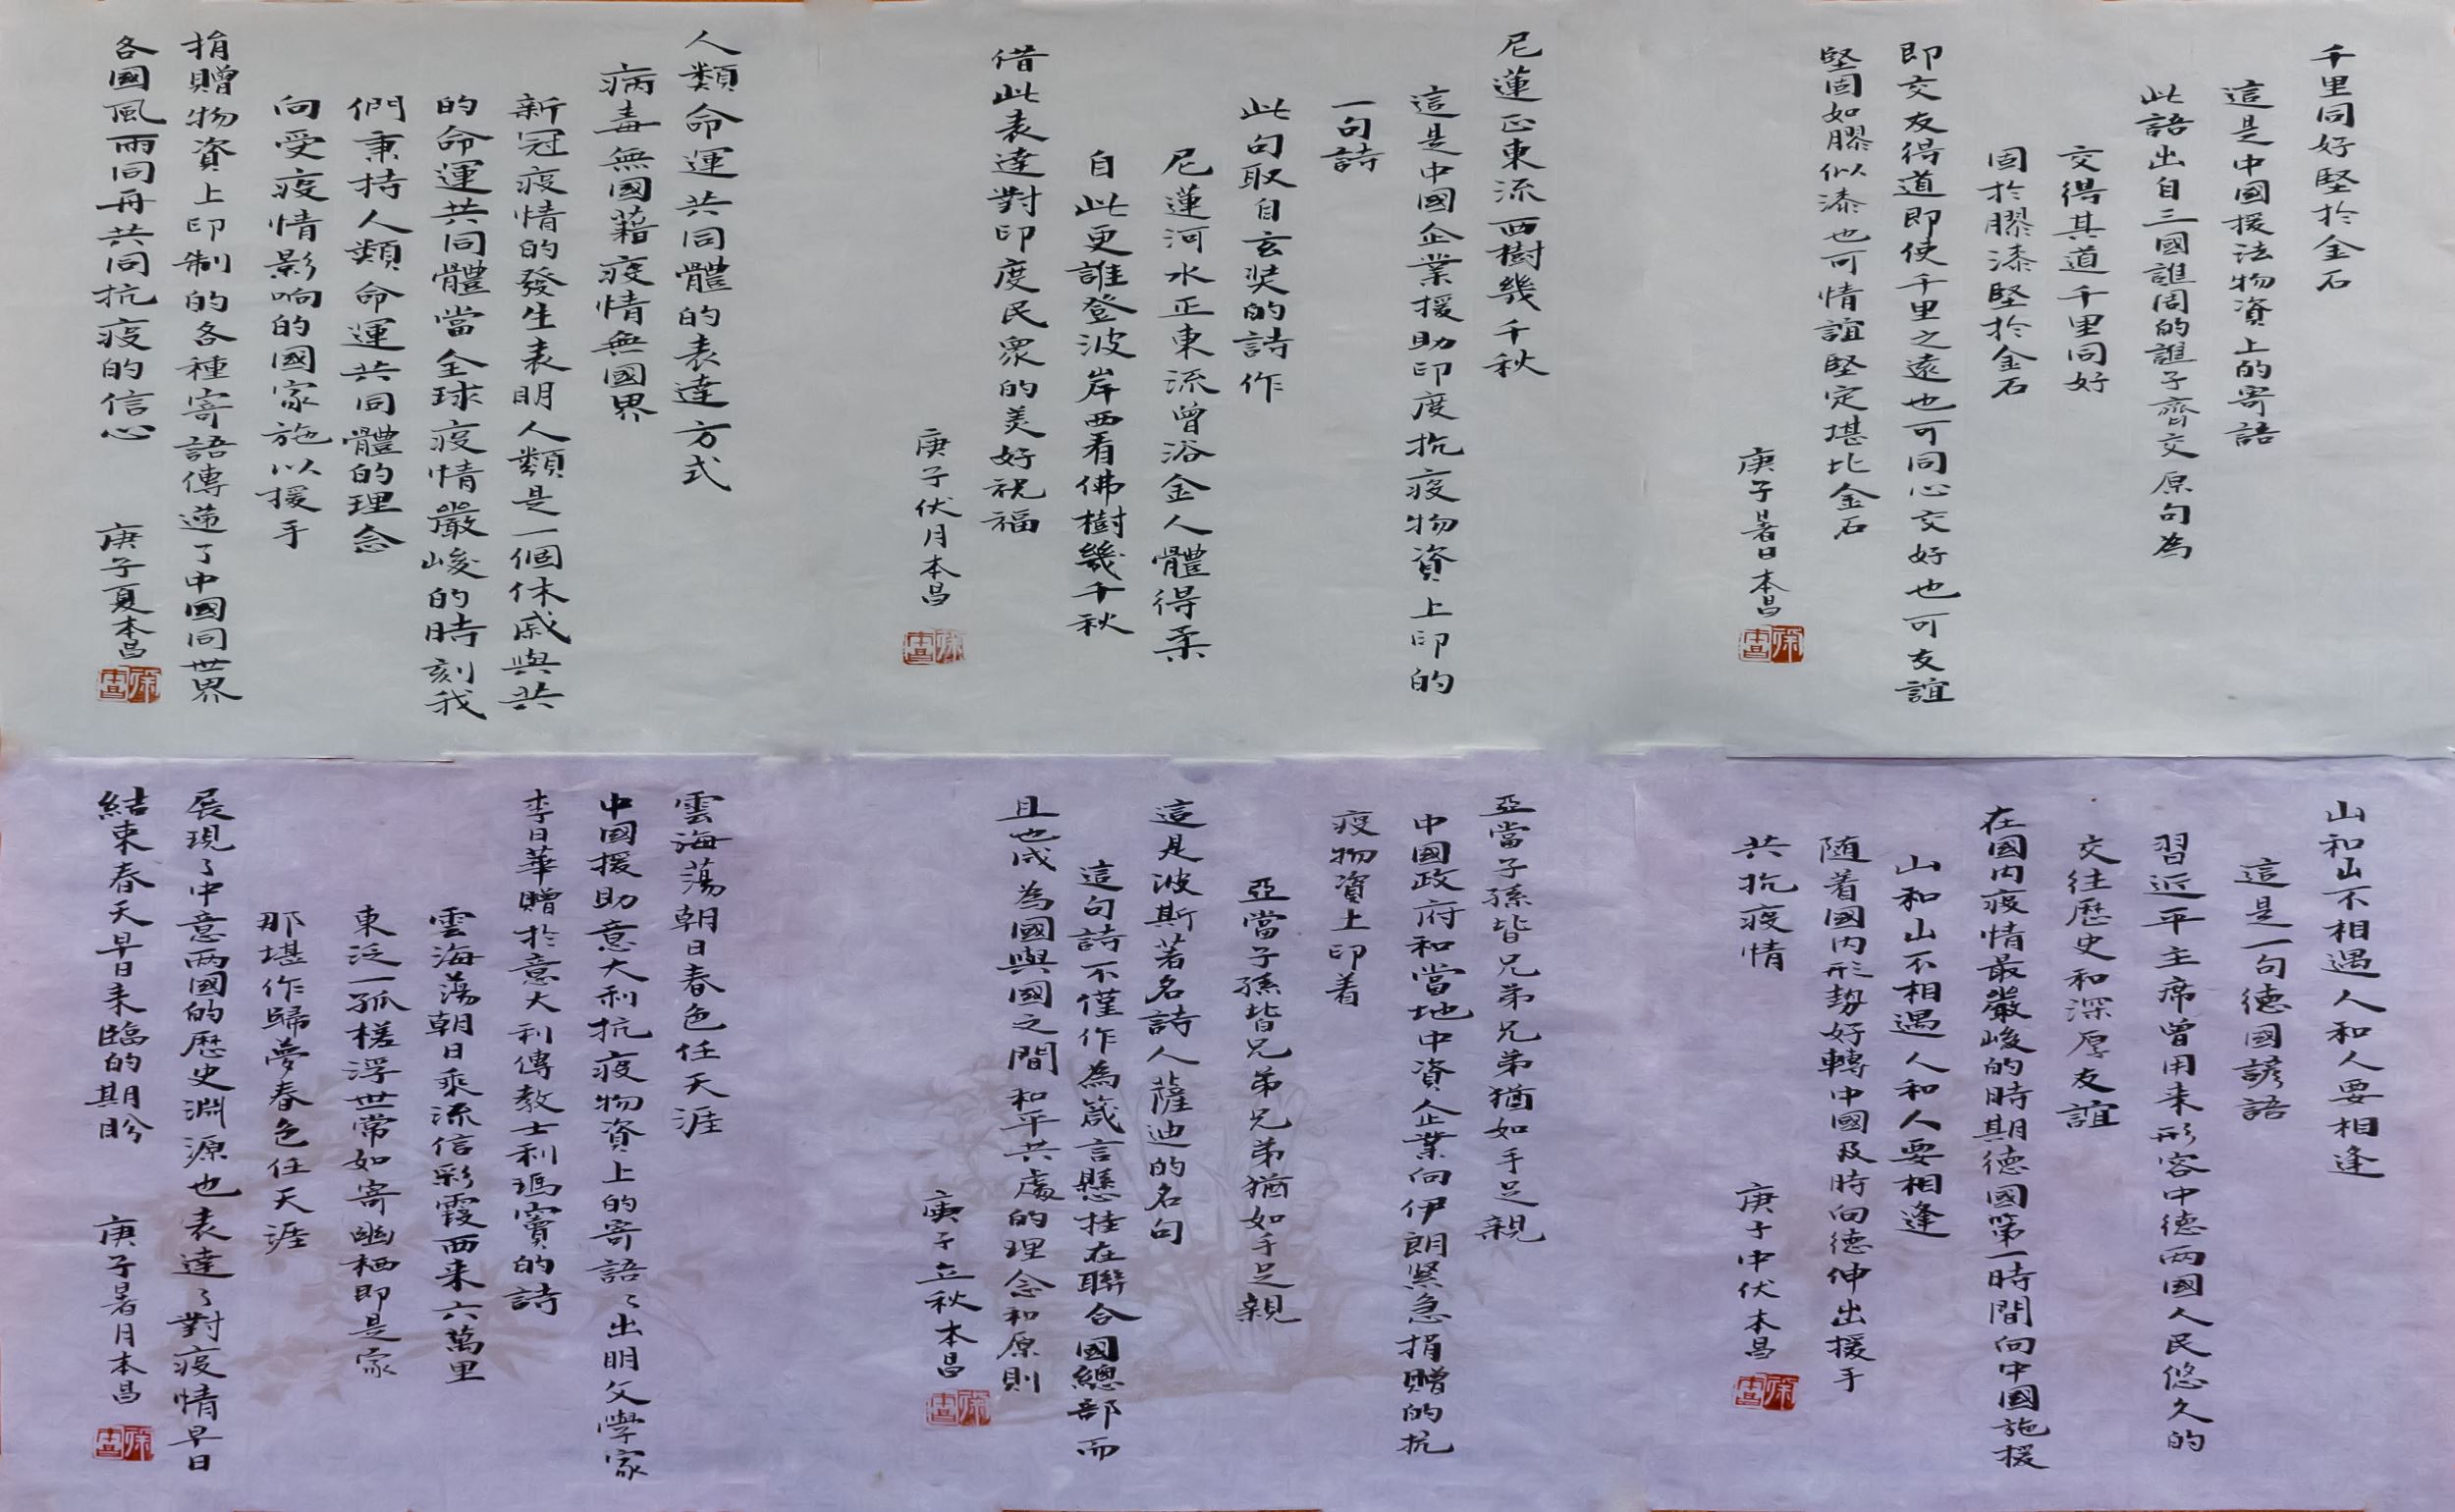 千里同好堅於金石
這是中國援法物資上的寄語
此語出自三國譙周的譙子齊交原句為
交得其道千里同好
固於膠漆堅於金石
即交友得道即使千里之遠也可同心交好也可友誼
堅固如膠似漆也可情誼堅定堪比金石
庚子暑日本昌
尼蓮正東流西樹幾千秋
這是中國企業援助印度抗疫物資上印的
一句詩
此句取自玄奘的詩作
尼蓮河水正東流曾浴金人體得柔
自此更誰登波岸西看佛樹幾千秋
借此表達對印度民衆的美好祝福
庚子伏月本昌
人類命運共同體的表達方式
病毒無國藉疫情無國界
新冠疫情的發生表明人類是一個休戚與共
的命運共同體當全球疫情嚴峻的時刻我
們秉持人類命運共同體的理念
向受疫情影响的國家施以援手
捐贈物資上印制的各種寄語傳递了中國同世界
各國風雨同舟共同抗疫的信心
庚子夏本昌
山和山不相遇人和人要相逢
這是一句德國諺語
習近平主席曾用来形容中德两國人民悠久的
交往歷史和深厚友誼
在國内疫情最嚴峻的時期德國第一時間向中國施援
山和山不相遇人和人要相逢
随着國内形勢好轉中國及時向德伸出援手
共抗疫情
庚子中伏本昌
亞當子孫皆兄弟兄弟猶如手足親
中國政府和當地中資企業向伊朗緊急捐贈的抗
疫物資上印着
亞當子孫皆兄弟兄弟猶如手足親
這是波斯著名詩人薩迪的名句
這句詩不僅作為箴言懸挂在聯合國總部而
且也成為國與國之間和平共處的理念和原則
庚子立秋本昌
雲海蕩朝日春色任天涯
中國援助意大利抗疫物資上的寄語々出明文學家
李日華贈於意大利傳教士利瑪竇的詩
雲海蕩朝日乘流信彩霞西来六萬里
東泛一孤槎浮世常如寄幽栖即是家
那堪作歸夢春色任天涯
展現了中意两國的歷史淵源也表達了對疫情早日
結束春天早日来臨的期盼
庚子暑月本昌